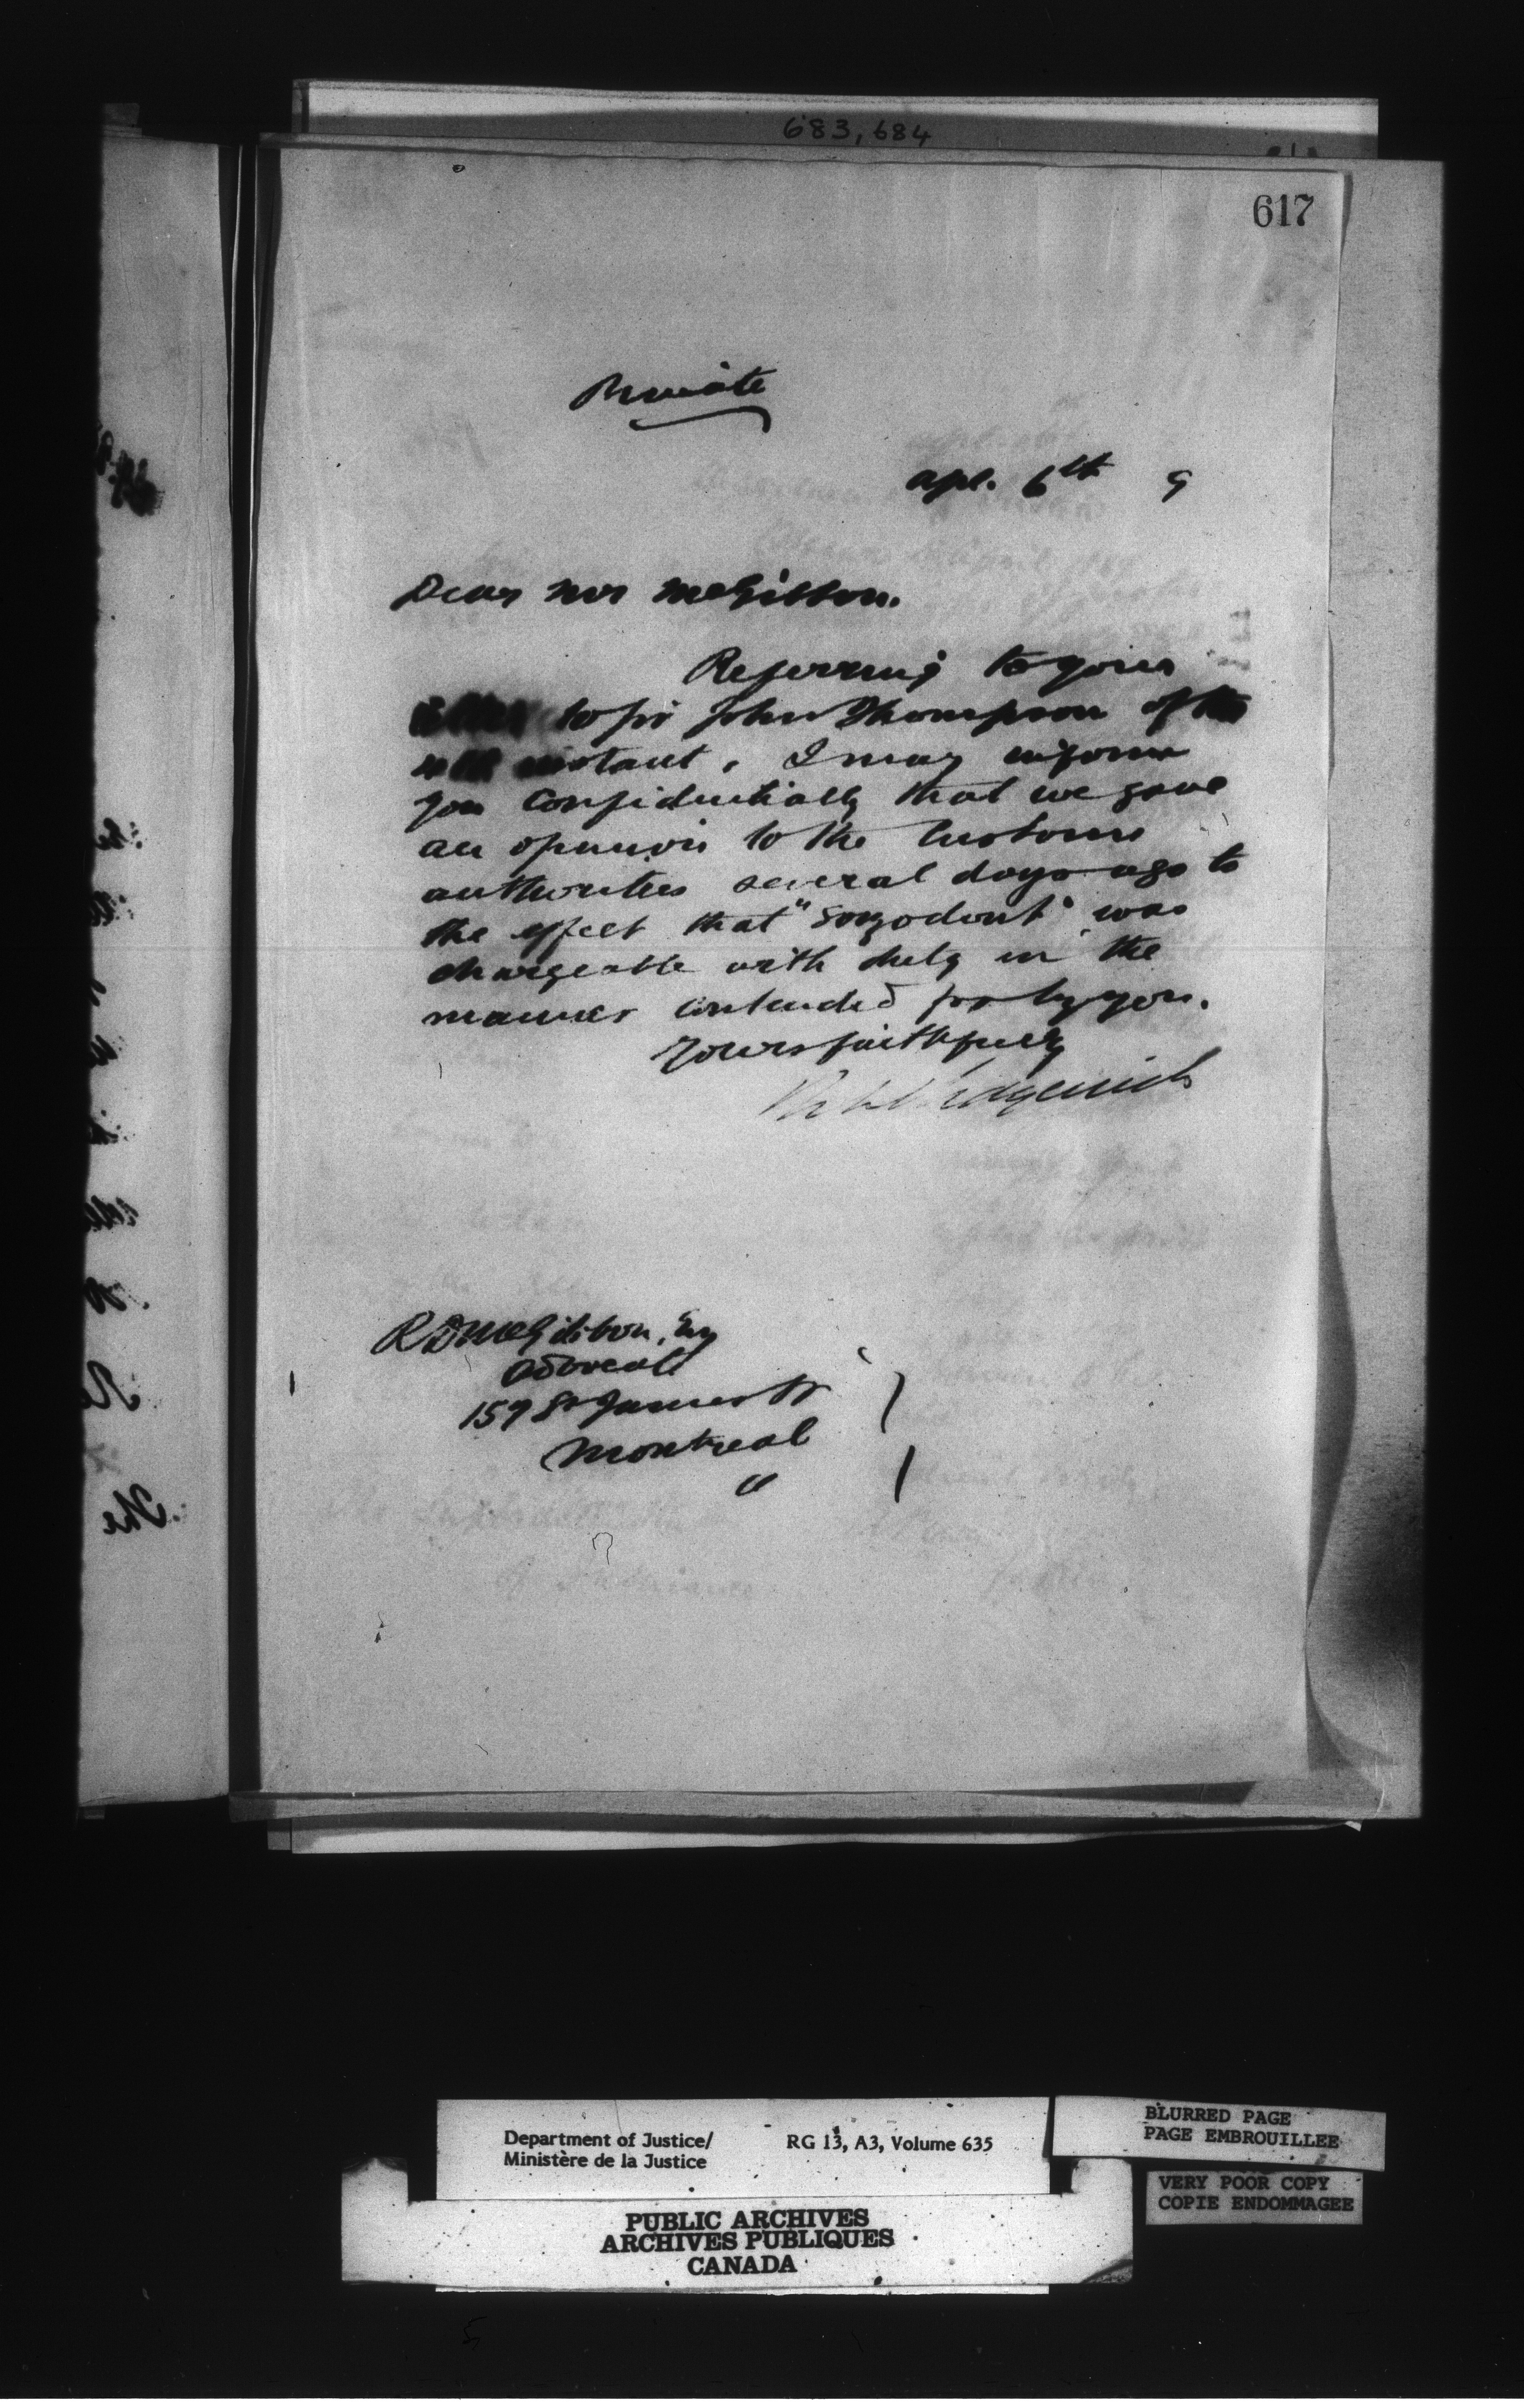 683, 684
617
Private
Apl. 6th 9
Dear Mr McGibbon.
Referring to your
letter to Sir John Thompson of the
4th instant, I may inform
you confidentially that we gave
an opinion to the Customs
authorities several days ago to
the effect that "Sozodont" was
chargeable with duty in the
manner contended for by you.
Yours faithfully
Sedgewick
R D McGibbon, Esq
Advocate
157 St James St
Montreal
Department of Justice/
Ministère de la Justice
RG 13, A3, Volume 635
BLURRED PAGE
PAGE EMBROUILLEE
VERY POOR COPY
COPIE ENDOMMAGEE
PUBLIC ARCHIVES
ARCHIVES PUBLIQUES
CANADA